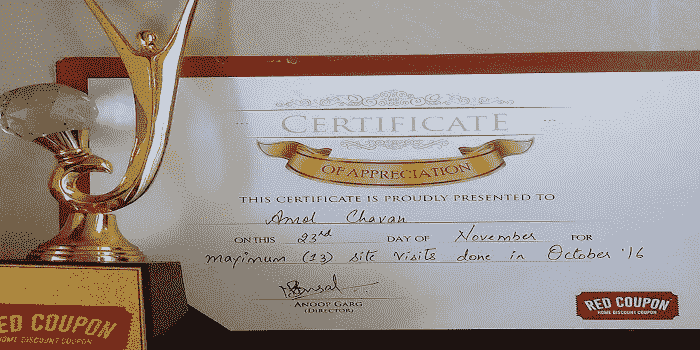 CERTIFICATE
OF APPRECIATION
THIS CERTIFICATE IS PROUDLY PRESENTED TO
Amol Chavan
ON THIS 23rd DAY OF November FOR
maximum (13) site visits done in October '16
ANOOP GARG
(DIRECTOR)
RED COUPON
HOME DISCOUNT COUPON
ED COUPON
HOME DISCOUNT COUPON